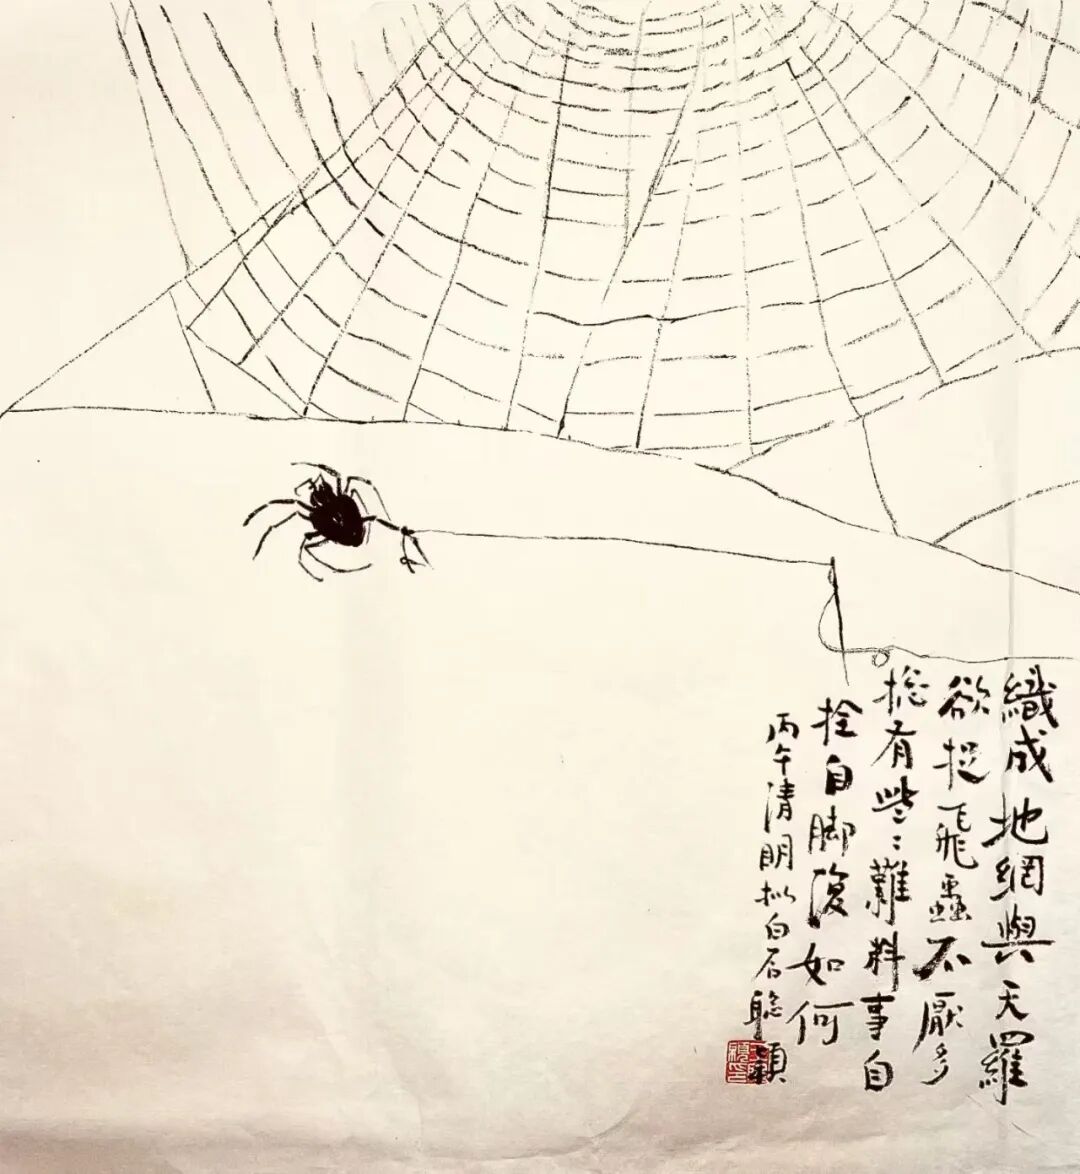 織成地網與天羅
欲捉飛蟲不厭多
捴有些々難料事自
拴自脚復如何
丙午清明拟白石聪颖